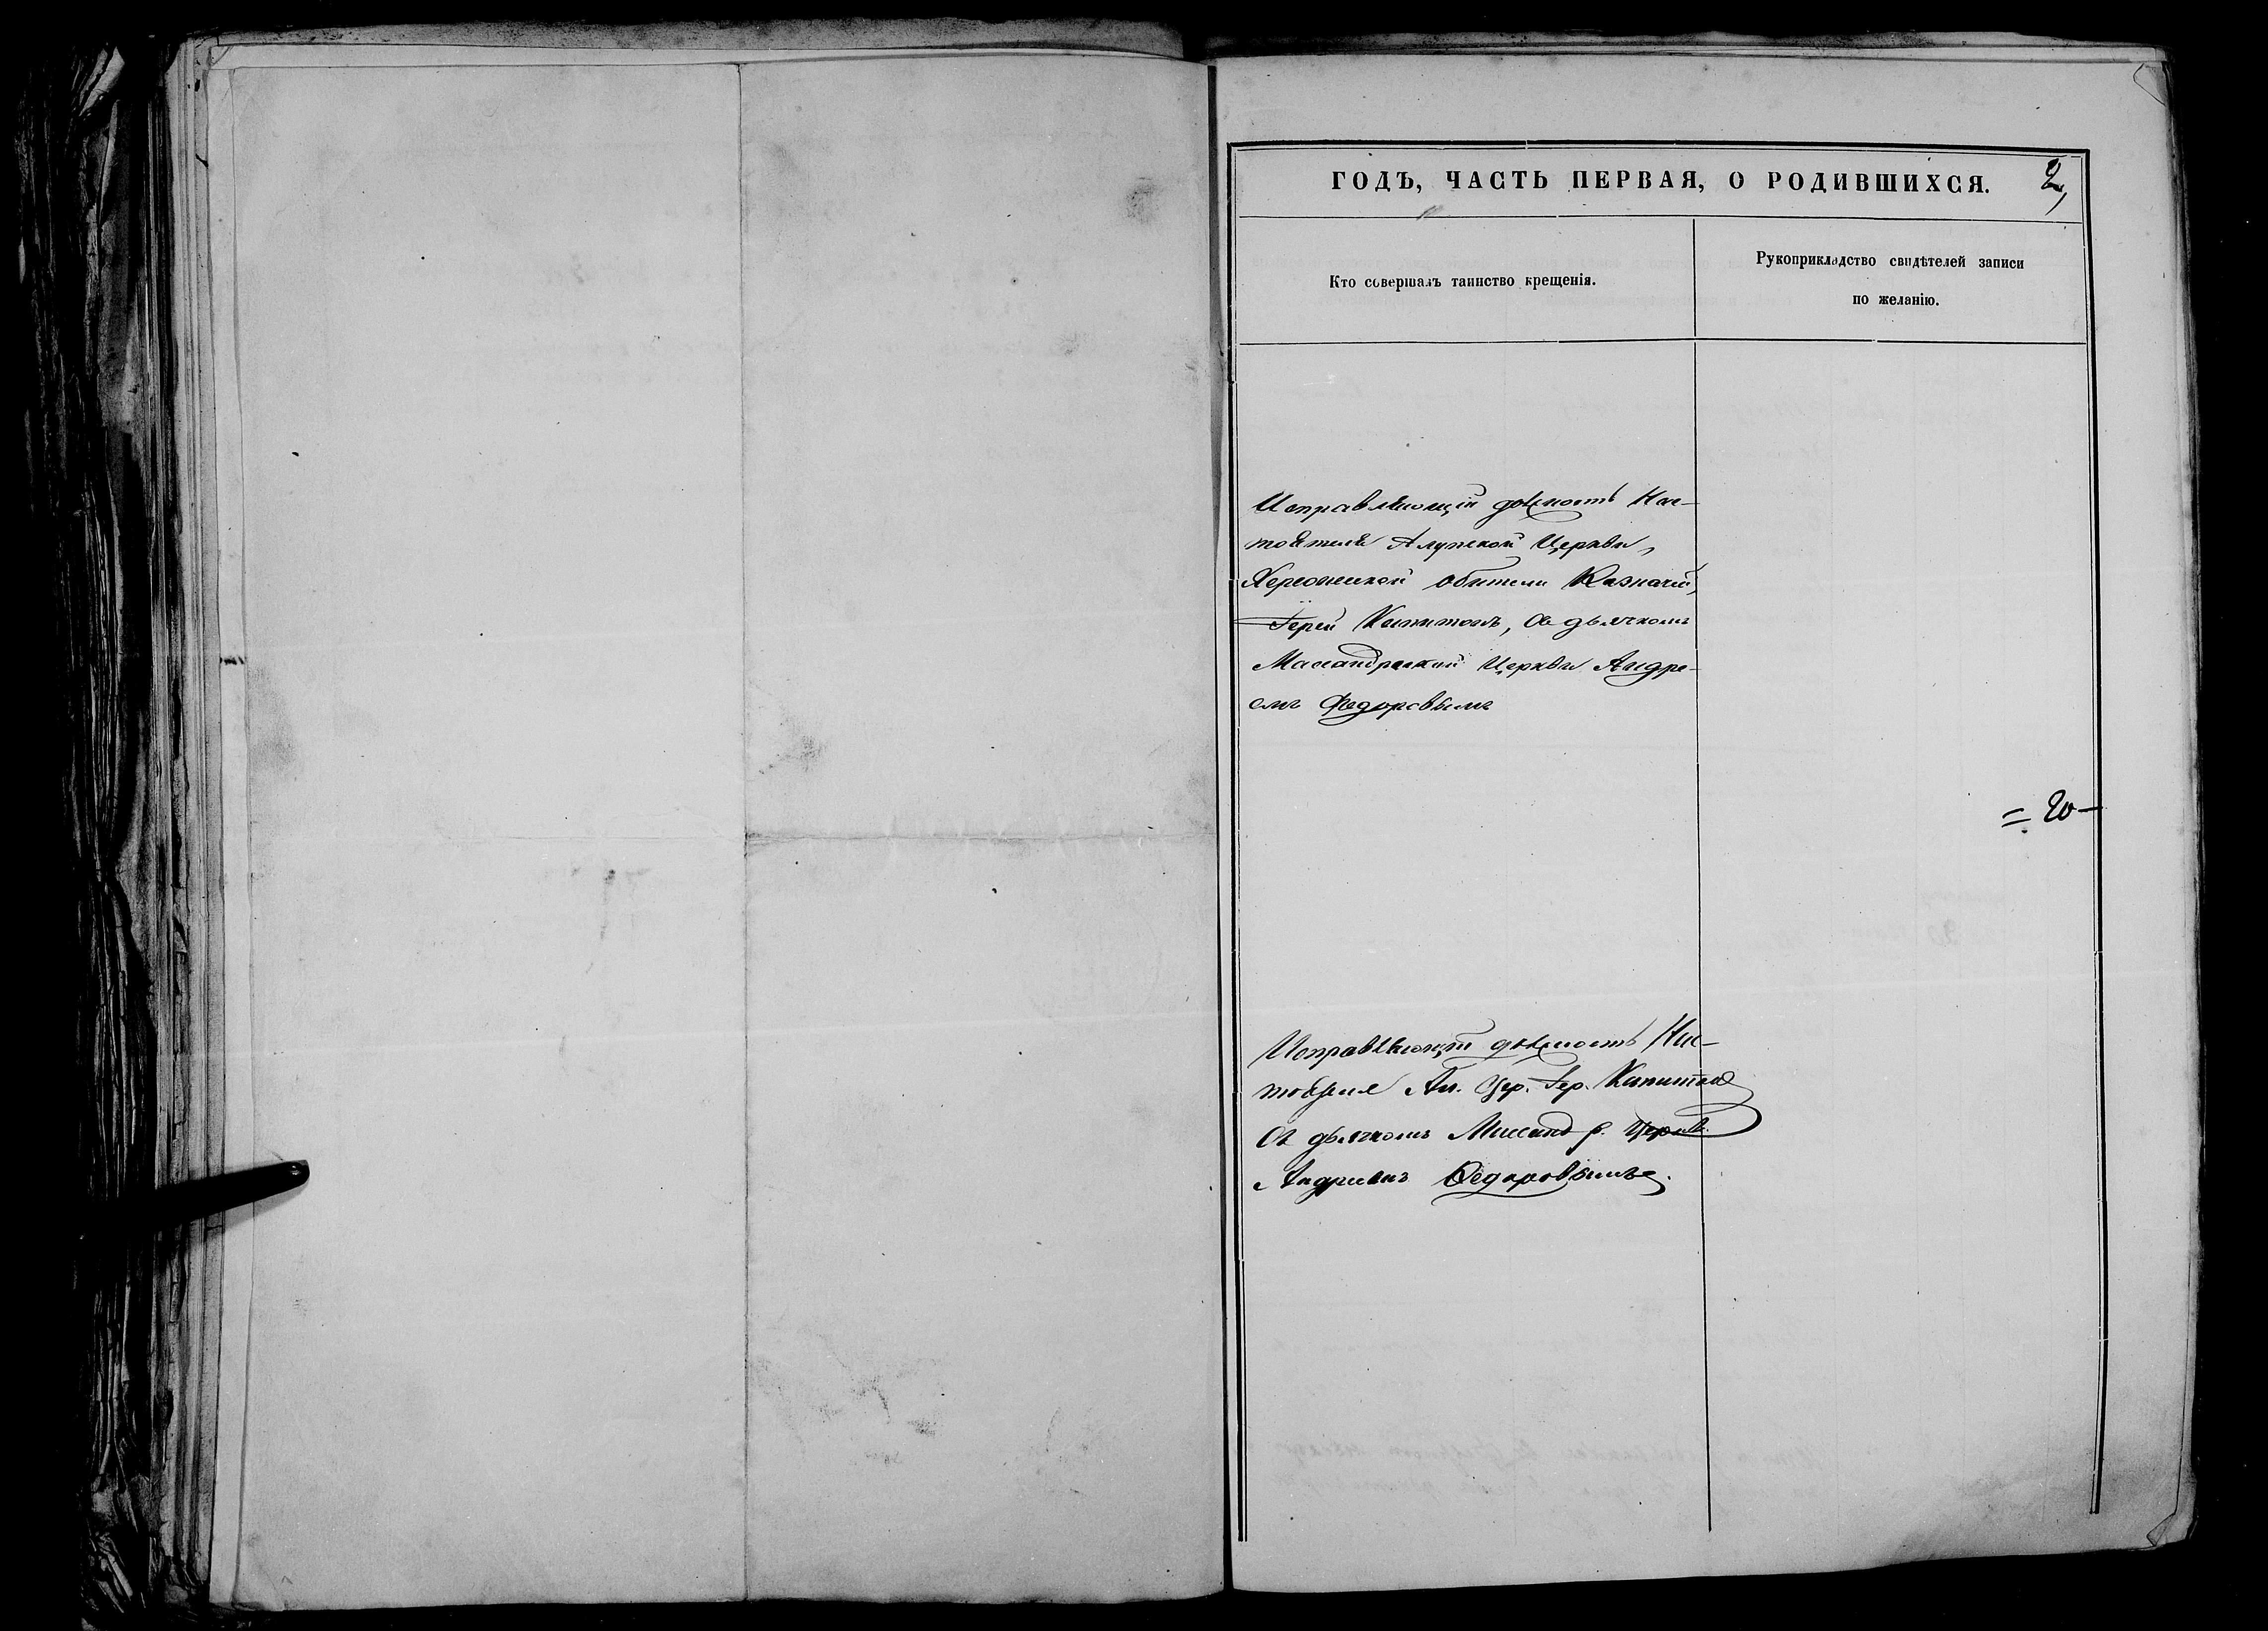 ГОДЪ, ЧАСТЬ ПЕРВАЯ, О РОДИВШИХСЯ.
2,
Кто совершалъ таинство крещенія.
Рукоприкладство свидѣтелей записи
по желанію.
Исправляющій должность Нас-
тоятеля Алупской Церкви,
Херсонеской обители Казначей,
Іерей Капитонъ, съ дьячкомъ
Массандрской Церкви Андре-
емъ Федоровымъ
= 20 —
Исправляющій должность Нас-
тоятеля Ал. Цер. Іер. Капитонъ
Съ дьячкомъ Массанд р. Церкв.
Андреемъ Федоровымъ.